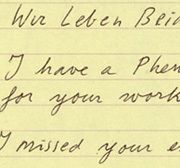 Wir Leben
I have a
for your work
I missed your